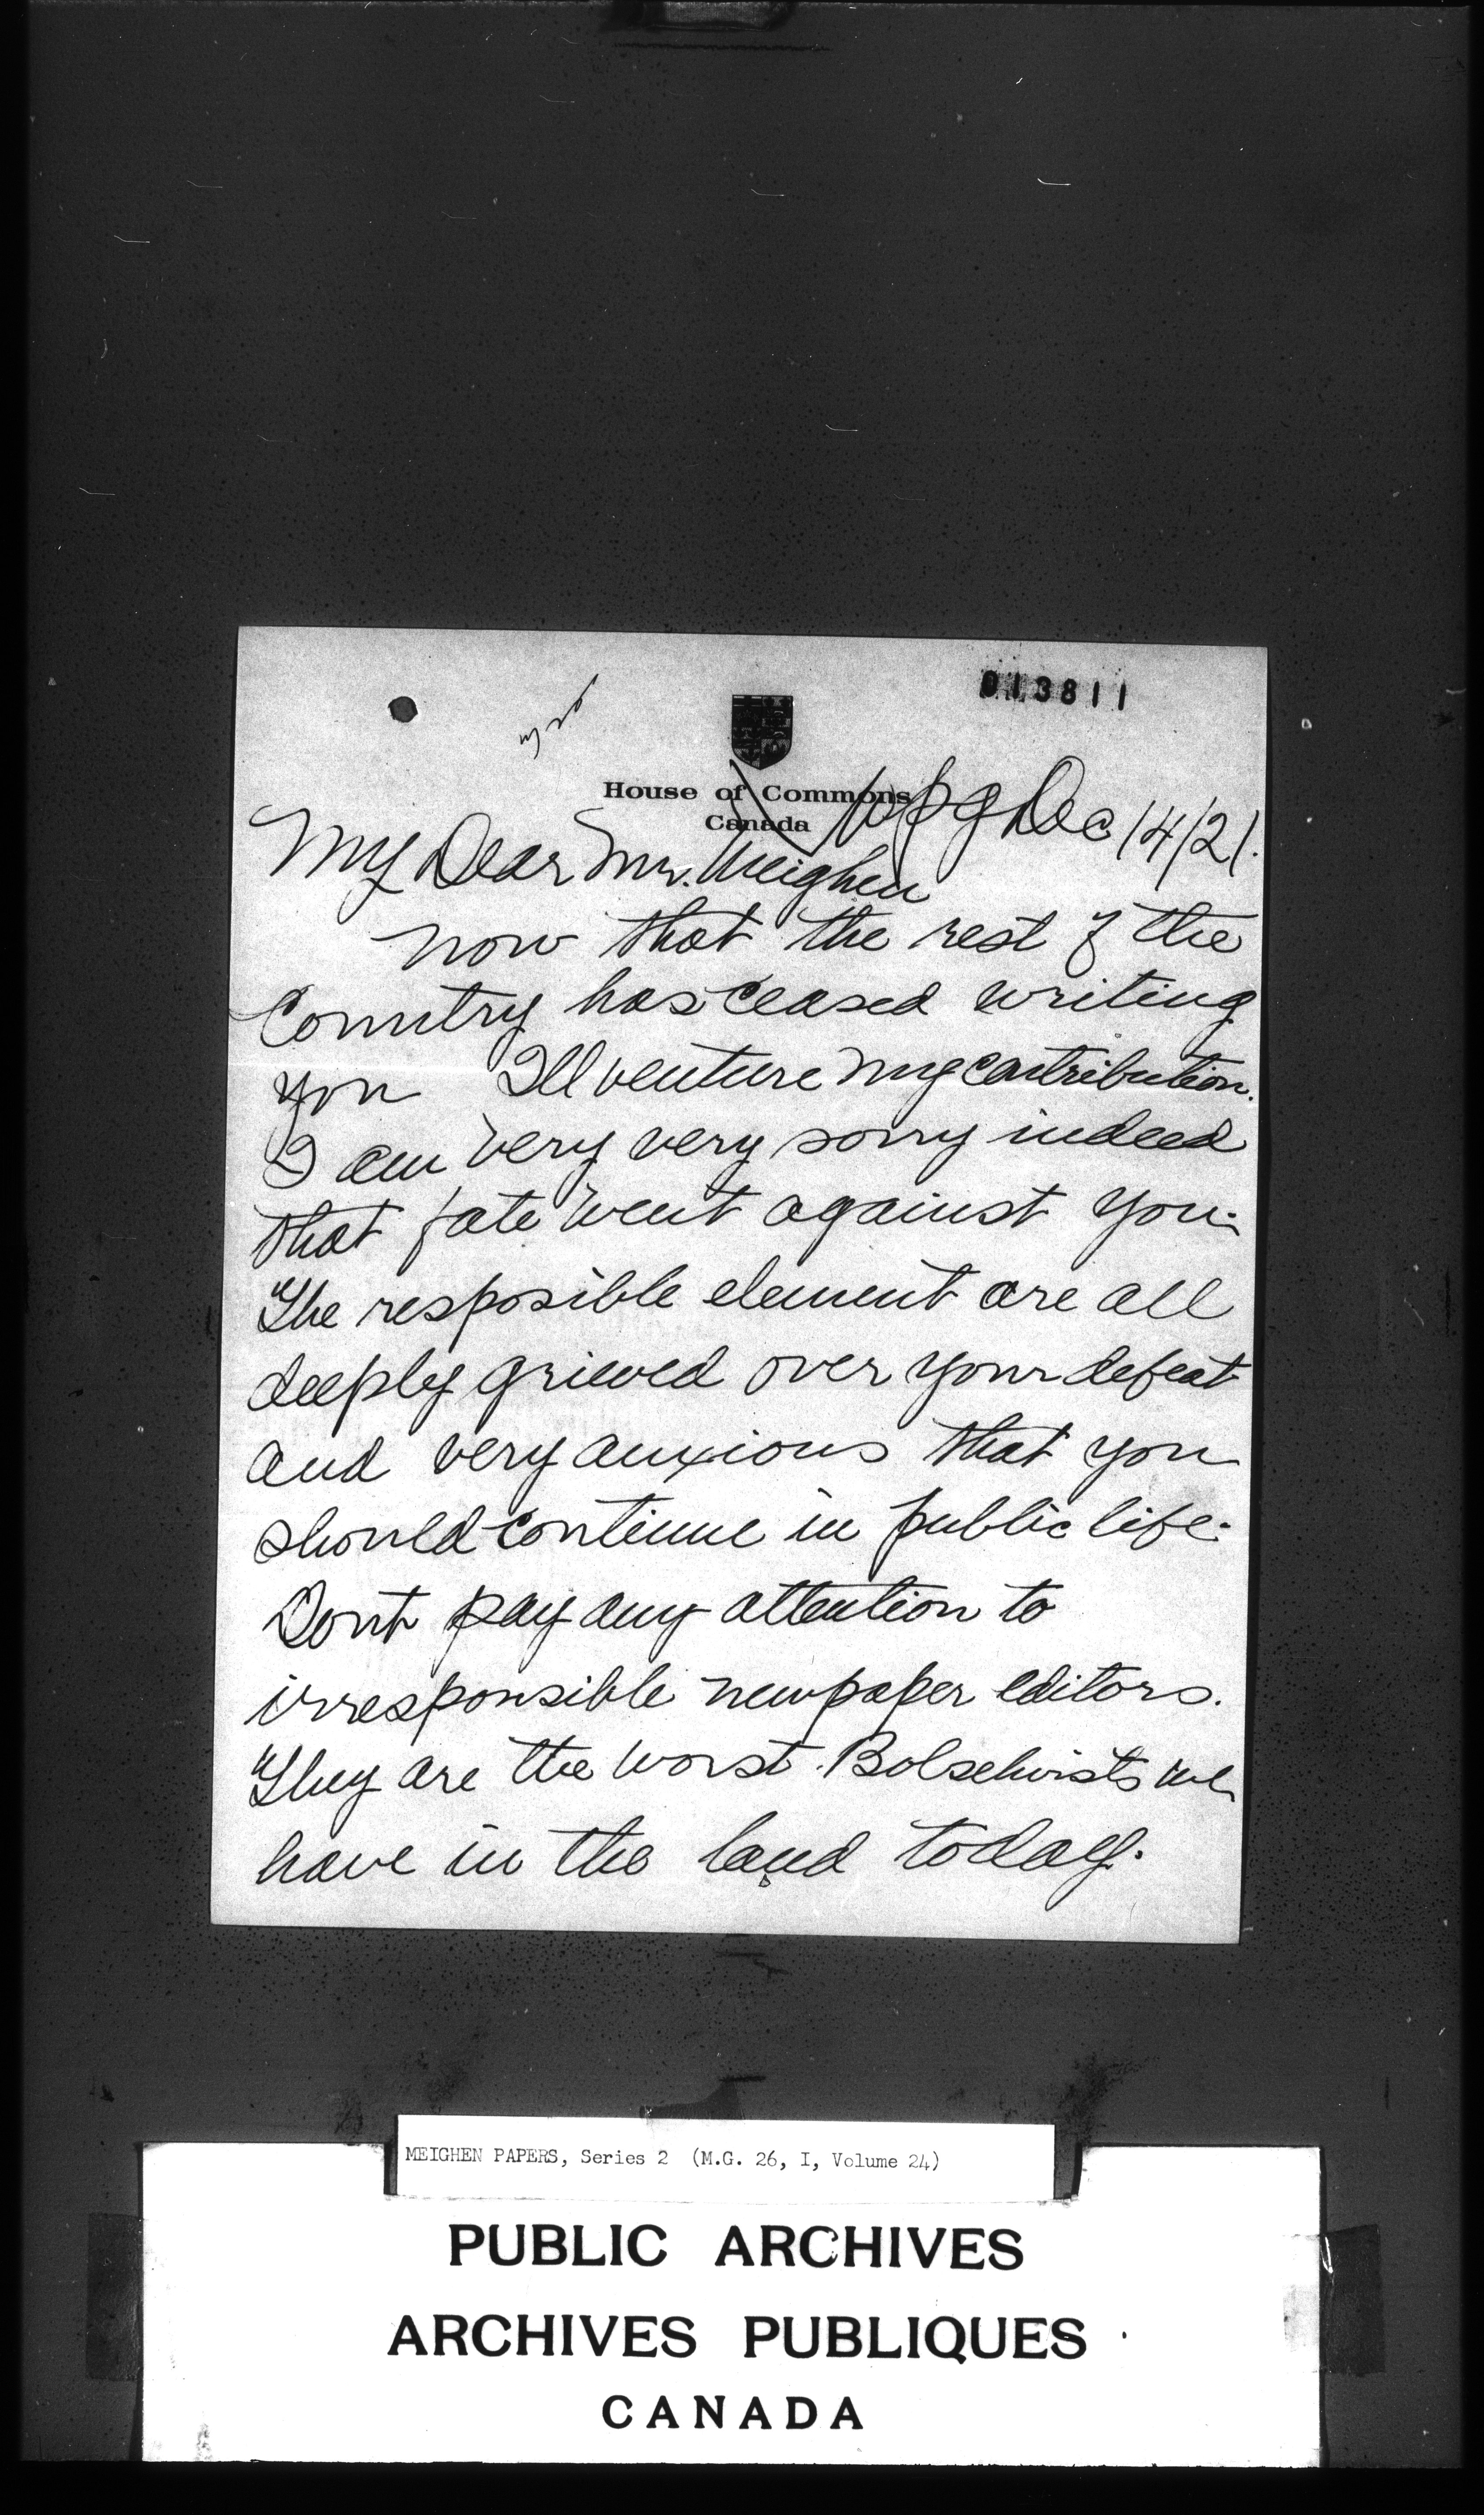 013811
House of Commons
Canada
Wpg Dec 14/21.
My Dear Mr. Meighen
Now that the rest of the
Country has ceased writing
you Ill venture my contribution.
I am very very sorry indeed
that fate went against you.
The resposible element are all
deeply grieved over your defeat
and very anxious that you
should continue in public life.
Dont pay any attention to
irresponsible newpaper editors.
They are the worst Bolsehvists we
have in the land today.
MEIGHEN PAPERS, Series 2 (M.G. 26, I, Volume 24)
PUBLIC ARCHIVES
ARCHIVES PUBLIQUES
CANADA